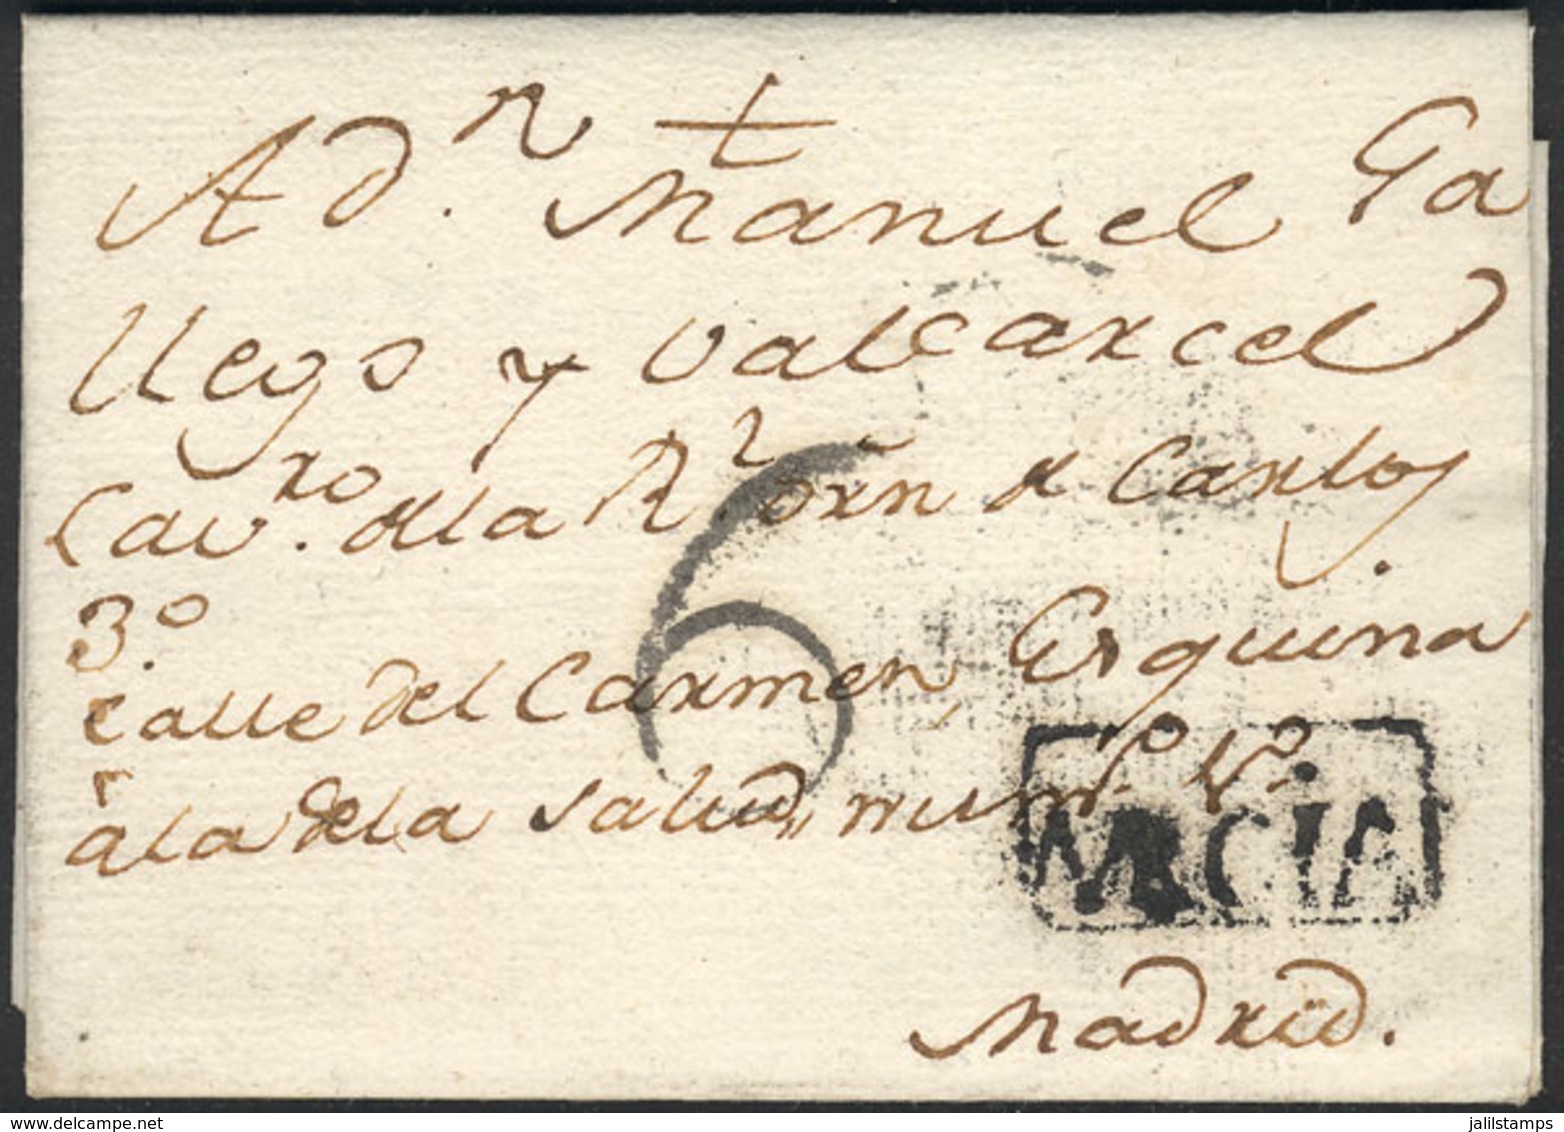 +
A Dn. Manuel Ga
llego y Valcarcel
Cavro. de la Rl. orñ de Carlos
3o.
Calle del Carmen, Esquina
a la de la Salud,, numo.
MRCiA
6
Madrid.
delcampe.net
jalilstamps